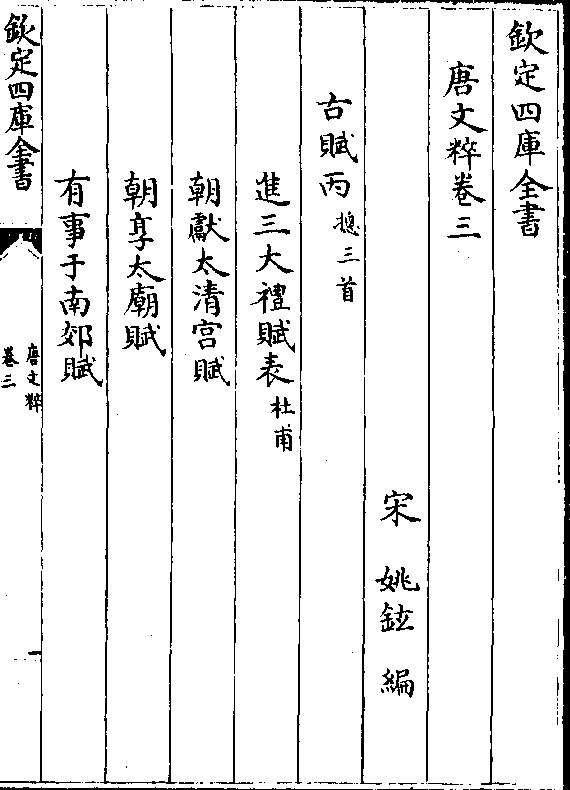 欽定四庫全書
唐文粹卷三
宋 姚鉉 編
古賦丙 摠三首
進三大禮賦表 杜甫
朝獻太清宮賦
朝享太廟賦
有事于南郊賦
欽定四庫全書
唐文粹
卷三
一